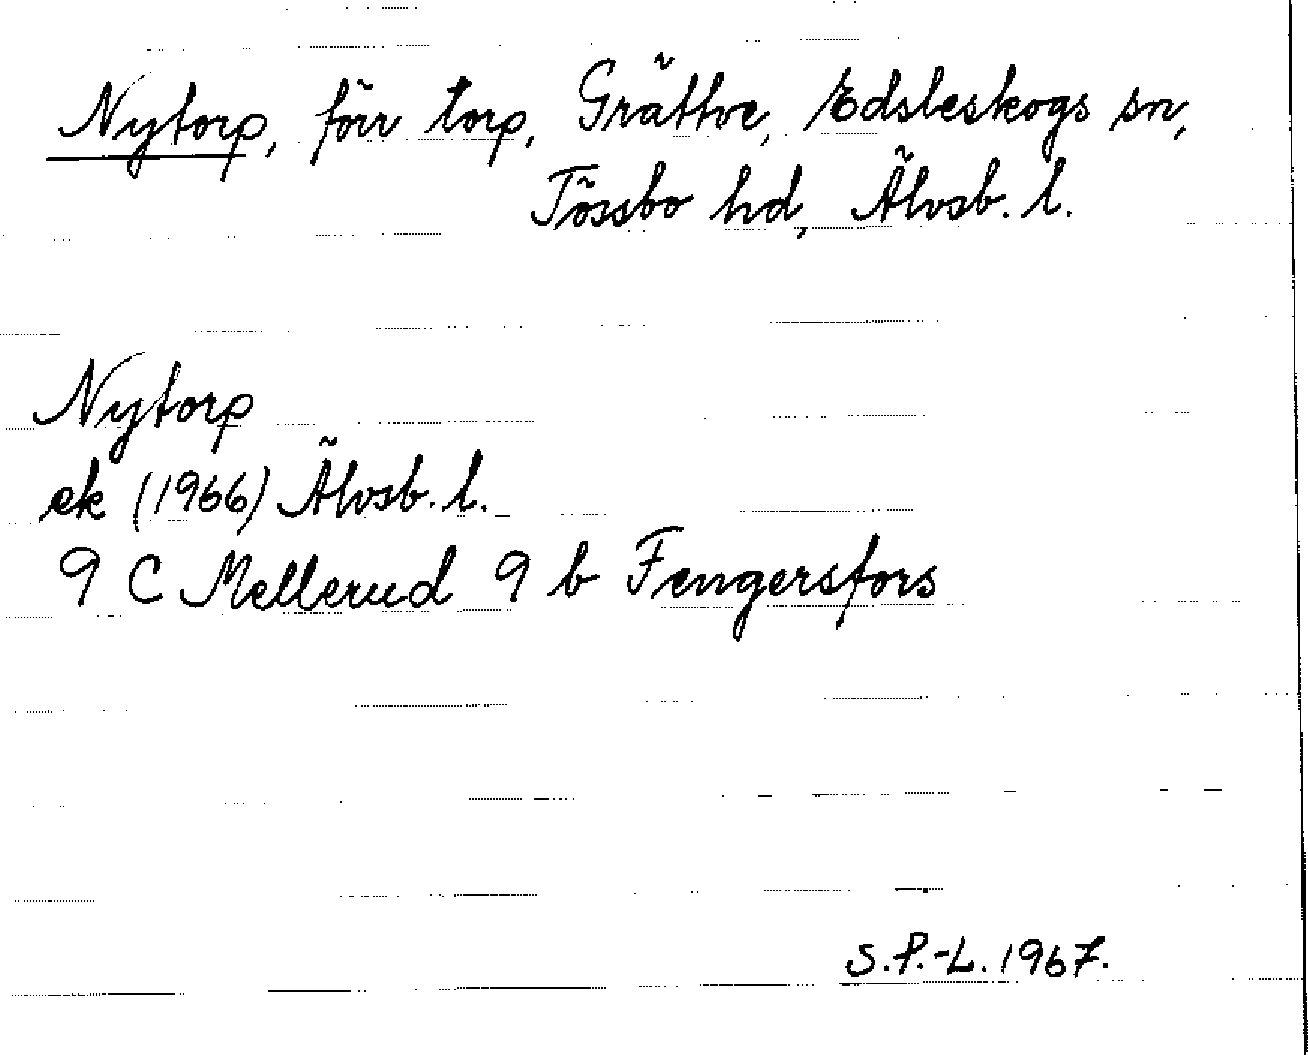 Nytorp, förr torp, Grättve, Edsleskogs sn,
Tössbo hd, Älvsb. l.
Nytorp
ek (1966) Älvsb. l.
9 C Mellerud 9 b Fengersfors
S.P.-L. 1967.